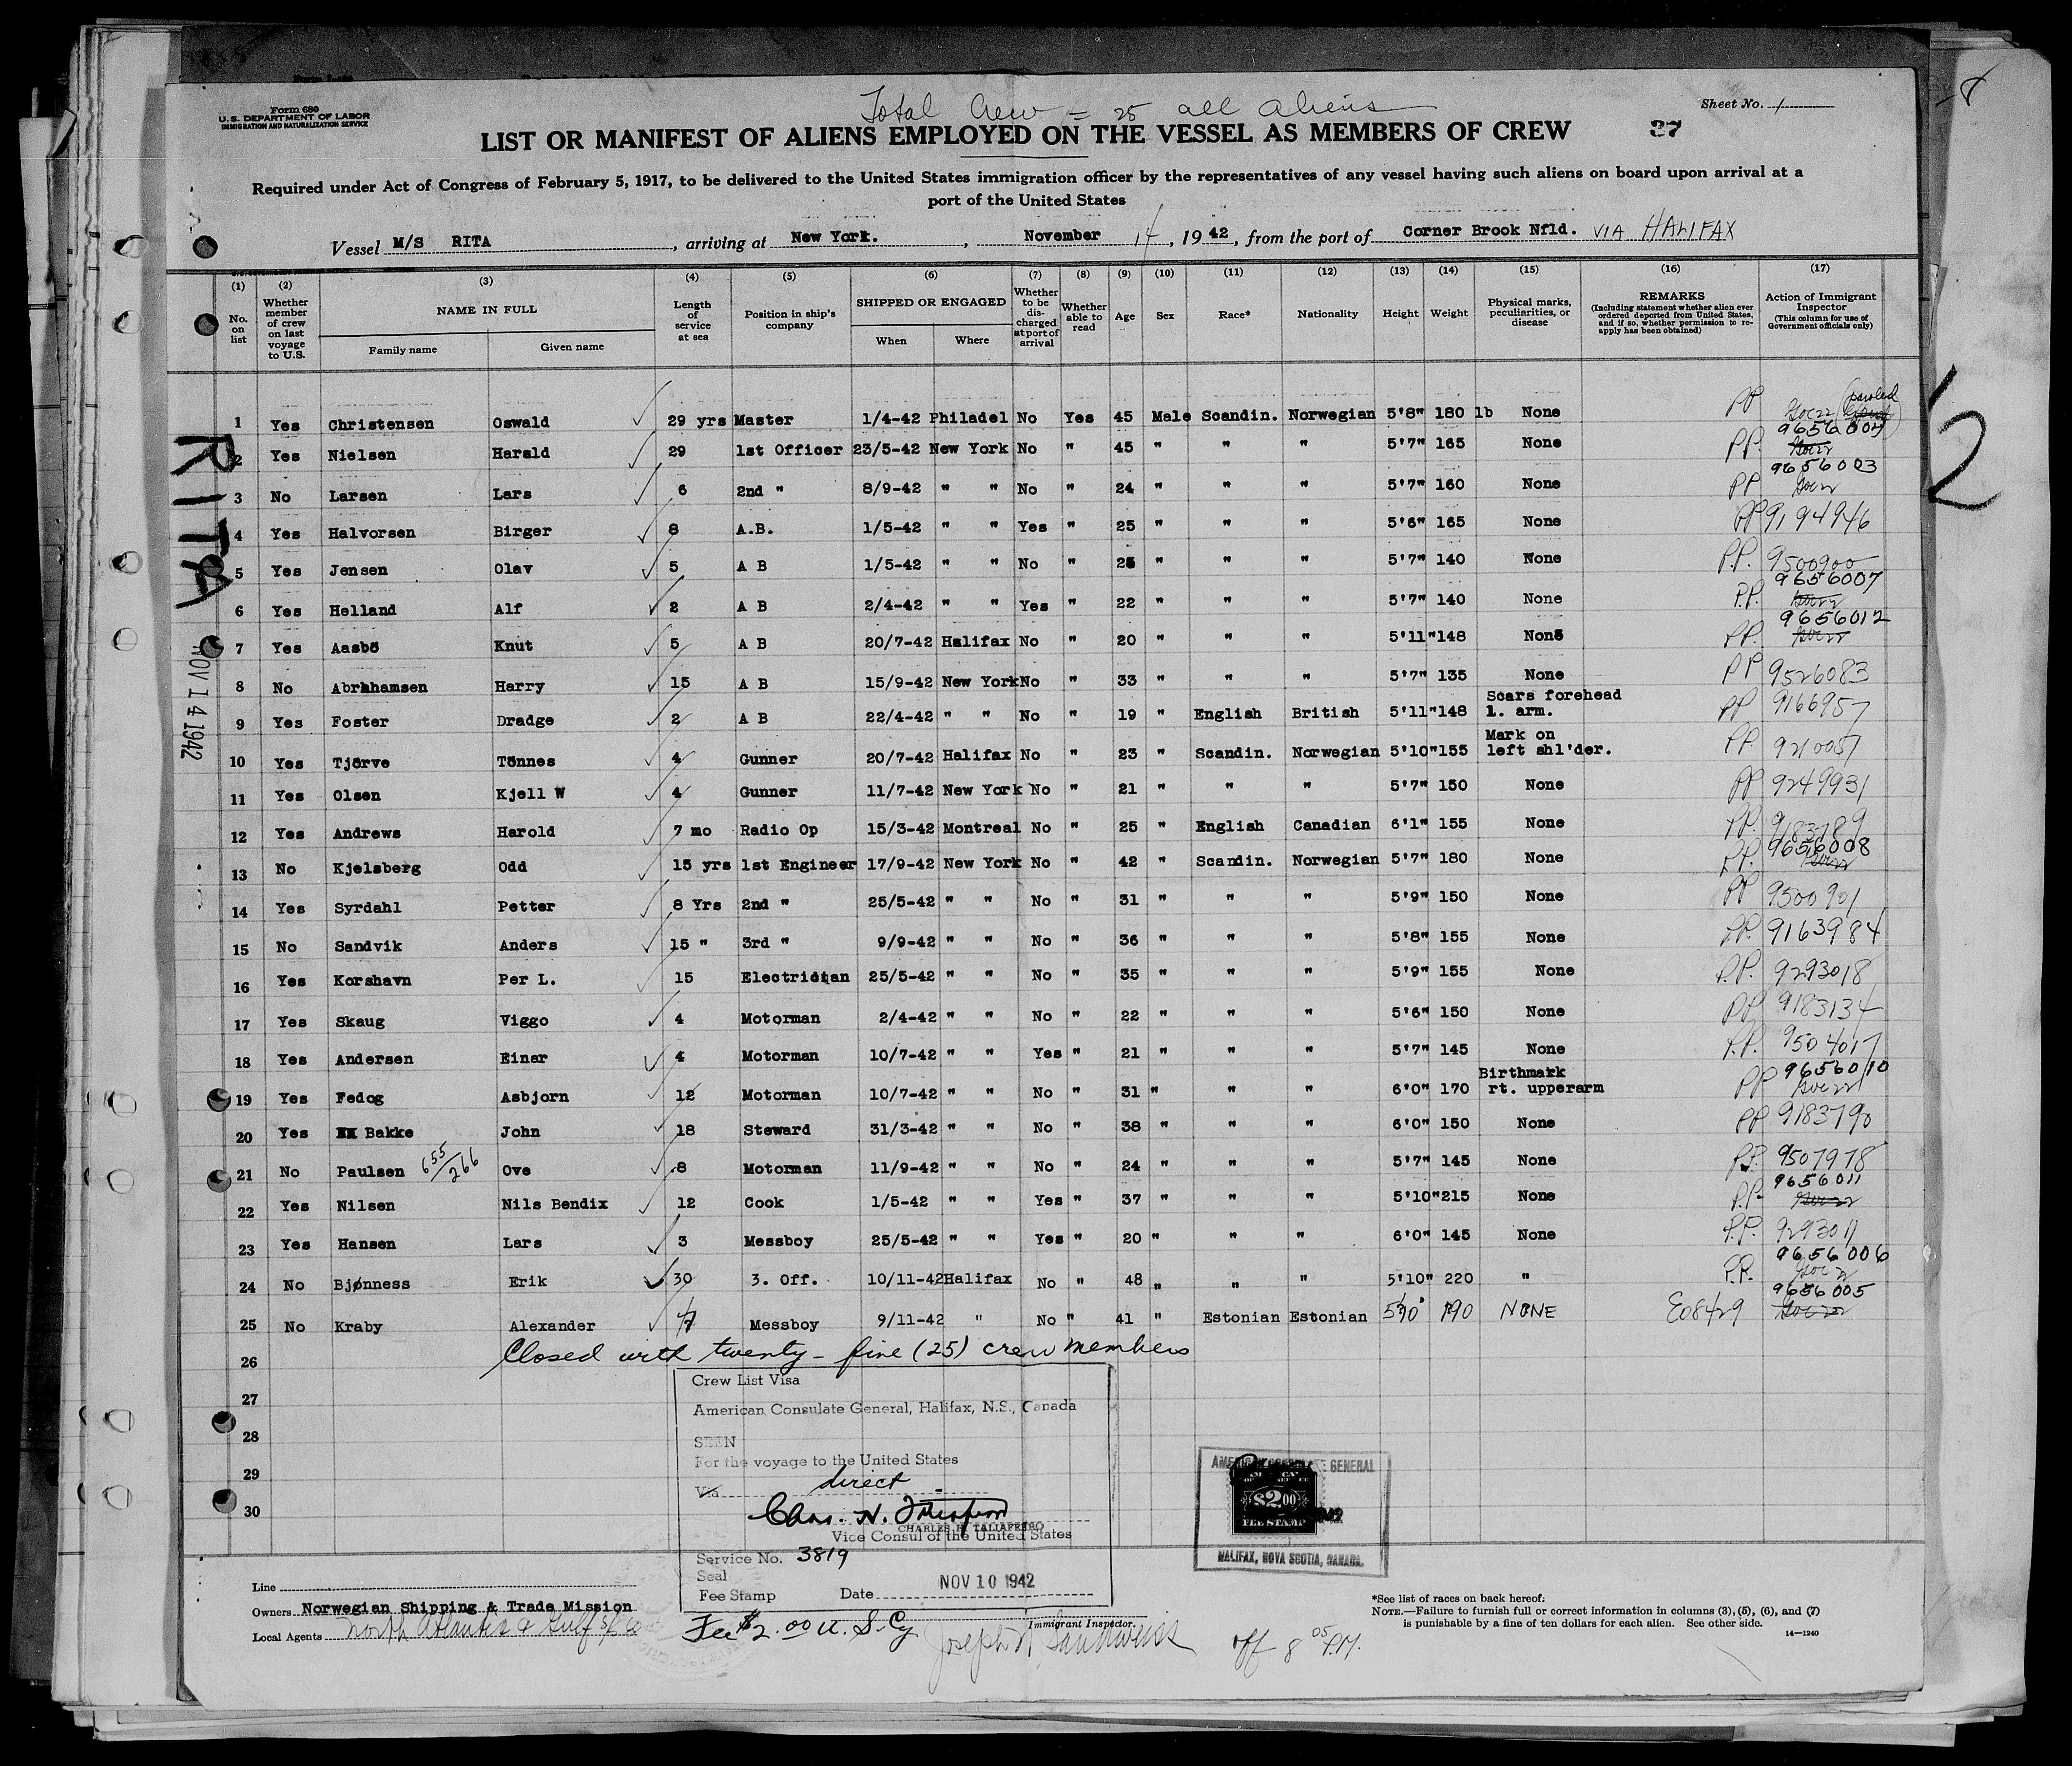 Form 680
U.S. DEPARTMENT OF LABOR
IMMIGRATION AND NATURALIZATION SERVICE
Total Crew = 25 all aliens
Sheet No. 1
LIST OR MANIFEST OF ALIENS EMPLOYED ON THE VESSEL AS MEMBERS OF CREW
37
Required under Act of Congress of February 5, 1917, to be delivered to the United States immigration officer by the representatives of any vessel having such aliens on board upon arrival at a
port of the United States
Vessel M/S RITA, arriving at New York., November 14, 1942, from the port of Corner Brook Nfld. VIA HALIFAX
(1) No. on list (2) Whether member of crew on last voyage to U.S. (3) NAME IN FULL Family name Given name (4) Length of service at sea (5) Position in ship's company (6) SHIPPED OR ENGAGED When Where (7) Whether to be discharged at port of arrival (8) Whether able to read (9) Age (10) Sex (11) Race* (12) Nationality (13) Height (14) Weight (15) Physical marks, peculiarities, or disease (16) REMARKS (Including statement whether alien ever ordered deported from United States, and if so, whether permission to reapply has been obtained) (17) Action of Immigrant Inspector (This column for use of Government officials only)
1 Yes Christensen Oswald 29 yrs Master 1/4-42 Philadel No Yes 45 Male Scandin. Norwegian 5'8" 180 lb None PP
2 Yes Nielsen Harald 29 1st Officer 23/5-42 New York No " 45 " " " 5'7" 165 None PP. 9656004
3 No Larsen Lars 6 2nd " 8/9-42 " " No " 24 " " " 5'7" 160 None PP 9656003
4 Yes Halvorsen Birger 8 A.B. 1/5-42 " " Yes " 25 " " " 5'6" 165 None PP 9194946
5 Yes Jensen Olav 5 A B 1/5-42 " " No " 25 " " " 5'7" 140 None P.P. 9500900
6 Yes Helland Alf 2 A B 2/4-42 " " Yes " 22 " " " 5'7" 140 None P.P. 9656007
7 Yes Aasbö Knut 5 A B 20/7-42 Halifax No " 20 " " " 5'11" 148 None PP. 9656012
8 No Abrahamsen Harry 15 A B 15/9-42 New York No " 33 " " " 5'7" 135 None PP 9526083
9 Yes Foster Dradge 2 A B 22/4-42 " " No " 19 " English British 5'11" 148 Scars forehead l. arm. PP 9166957
10 Yes Tjörve Tönnes 4 Gunner 20/7-42 Halifax No " 23 " Scandin. Norwegian 5'10" 155 Mark on left shl'der. PP. 9210057
11 Yes Olsen Kjell W 4 Gunner 11/7-42 New York No " 21 " " " 5'7" 150 None PP 9249931
12 Yes Andrews Harold 7 mo Radio Op 15/3-42 Montreal No " 25 " English Canadian 6'1" 155 None PP. 9183789
13 No Kjelsberg Odd 15 yrs 1st Engineer 17/9-42 New York No " 42 " Scandin. Norwegian 5'7" 180 None P.P. 9656008
14 Yes Syrdahl Petter 8 Yrs 2nd " 25/5-42 " " No " 31 " " " 5'9" 150 None PP 9500901
15 No Sandvik Anders 15 " 3rd " 9/9-42 " " No " 36 " " " 5'8" 155 None PP. 9163984
16 Yes Korshavn Per L. 15 Electrician 25/5-42 " " No " 35 " " " 5'9" 155 None P.P. 9293018
17 Yes Skaug Viggo 4 Motorman 2/4-42 " " No " 22 " " " 5'6" 150 None PP 9183134
18 Yes Andersen Einar 4 Motorman 10/7-42 " " Yes " 21 " " " 5'7" 145 None P.P. 9504017
19 Yes Fedog Asbjorn 12 Motorman 10/7-42 " " No " 31 " " " 6'0" 170 Birthmark rt. upperarm PP 9656010
20 Yes Bakke John 18 Steward 31/3-42 " " No " 38 " " " 6'0" 150 None PP 9183790
21 No Paulsen 655/266 Ove 8 Motorman 11/9-42 " " No " 24 " " " 5'7" 145 None P.P. 9507978
22 Yes Nilsen Nils Bendix 12 Cook 1/5-42 " " Yes " 37 " " " 5'10" 215 None P.P. 9656011
23 Yes Hansen Lars 3 Messboy 25/5-42 " " Yes " 20 " " " 6'0" 145 None P.P. 9293011
24 No Bjønness Erik 30 3. Off. 10/11-42 Halifax No " 48 " " " 5'10" 220 " P.P. 9656006
25 No Kraby Alexander Messboy 9/11-42 " No " 41 " Estonian Estonian 5'10" 190 NONE E08429 9656005
Closed with twenty-five (25) crew members
26
27
28
29
30
RITA
NOV 14 1942
12
Crew List Visa
American Consulate General, Halifax, N.S., Canada
SEEN
For the voyage to the United States
Via direct
CHARLES H. TALIAFERRO
Vice Consul of the United States
Service No. 3819
Seal
Fee Stamp Date NOV 10 1942
Fee $2.00 U.S. Cy
AMERICAN CONSULATE GENERAL
$2.00
FEE STAMP
HALIFAX, NOVA SCOTIA, CANADA.
Line
Owners Norwegian Shipping & Trade Mission
Local Agents North Atlantic & Gulf S/S Co
Immigrant Inspector.
off 8 05 P.M.
*See list of races on back hereof.
NOTE.—Failure to furnish full or correct information in columns (3), (5), (6), and (7)
is punishable by a fine of ten dollars for each alien. See other side.
14—1240